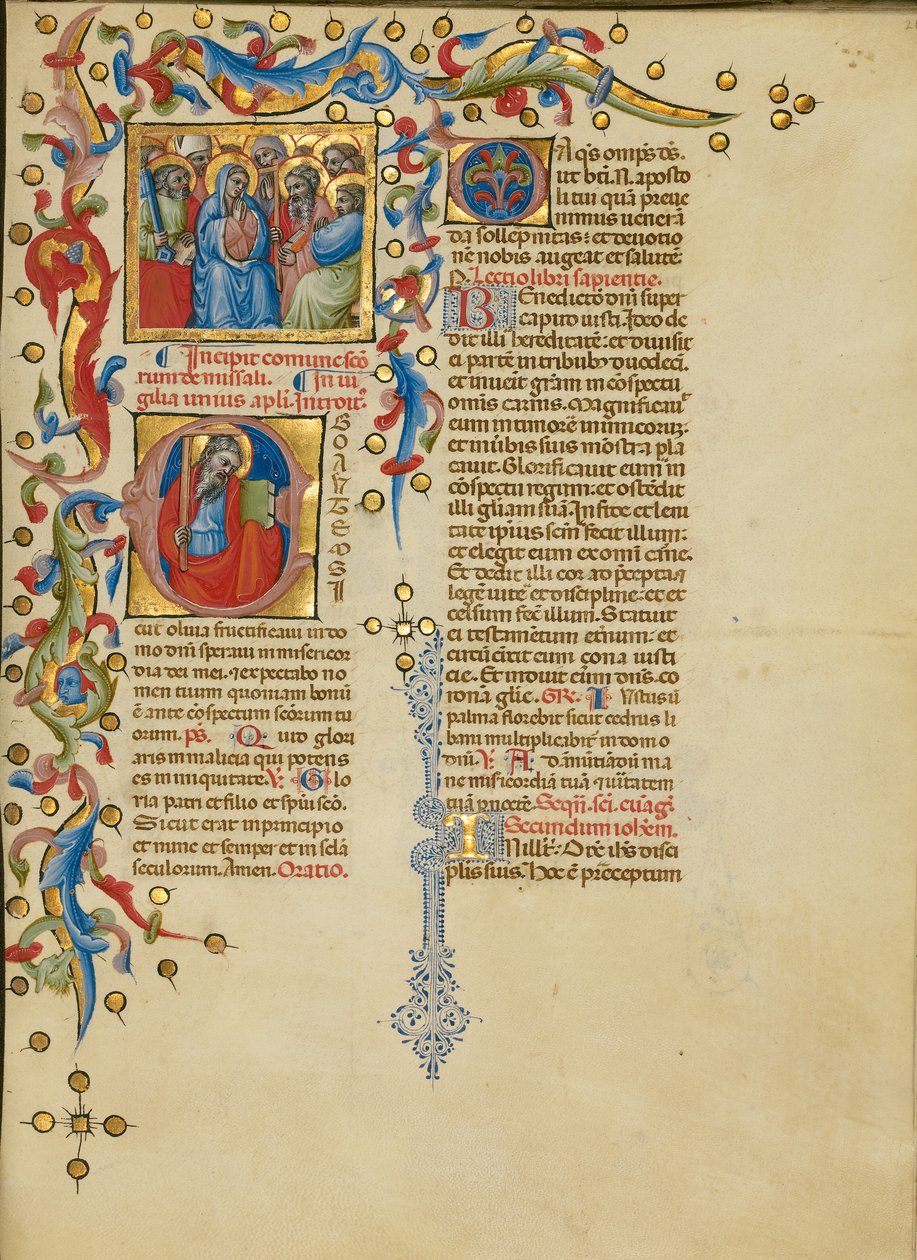 Incipit comune scō
rum de missali. In ui
gilia unius apli. Introit᷑.
EGO AVTEM SI
cut oliua fructificaui in do
mo dn̄i speraui in misericor
dia dei mei. ⁊ expectabo no
men tuum quoniam bonū
ē ante cōspectum scōrum tu
orum. ps̄. Quid glori
aris in malicia qui potens
es in iniquitate. V̸. Glo
ria patri et filio et spiui scō.
Sicut erat in principio
et nunc et semper et in scl̄a
seculorum. Amen. Oratio.
DA q̄s omp̄s ds̄.
ut bt̄i. N. aposto
li tui quā preue
nimus uenerā
da sollepnitas: et deuotio
nē nobis augeat et salutē
Lectio libri sapientie.
BEnedictō dn̄i super
caput iusti. Ideo de
dit illi hereditatē: et diuisit
ei partē in tribubꝫ duodeci.
et inueit grām in cōspectu
omīs carnis. Magnificauᷣ
eum in timorē inimicoruꝫ:
et in ūbis suis mōstra pla
cauit. Glorificauit eum in
cōspectu regum: et ostēdit
illi glīam suā. In fide et leni
tate ip̄ius scm̄ fecit illum:
et elegit eum ex omī carne.
Et dedit illi cor ad p̄cepta ⁊
legē uite et discipline: et ex
celsum fec̄ illum. Statuit
ei testamētum etn̄um: et
circūcīxit eum zona iusti
cie. Et induit eum dn̄s. co
ronā glīe. GR̄. Iustus ū
palma florebit sicut cedrus li
bani multiplicabit᷑ in domo
dn̄i. V̸. Ad ānūtiādū ma
ne misicordiā tuā ⁊ ūitatem
tuā p noctē. Seqn̄. sci. euāgl̄.
Secundum iohēm.
IN ill̄t: Dix̄ ih̄s disci
pl̄is suis. Hoc ē p̄ceptum